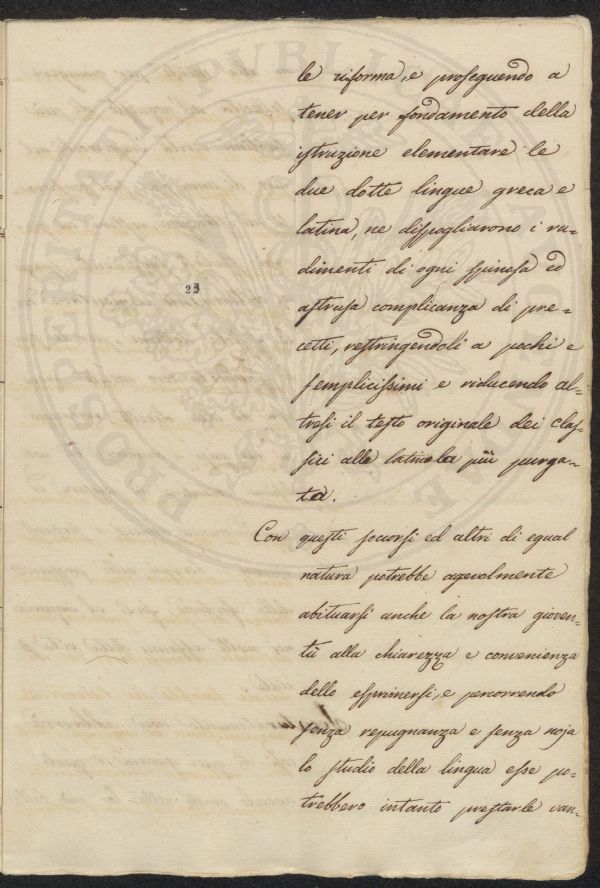 le riforma, e proseguendo a
tener per fondamento della
istruzione elementare le
due dotte lingue greca e
latina, ne dispogliarono i ru=
dimenti di ogni spinosa ed
23
astrusa complicanza di pre=
cetti, restringendoli a pochi e
semplicissimi e riducendo al=
tresì il testo originale dei clas=
sici alla più purga=
ta.
Con questi soccorsi ed altri di egual
natura potrebbe agevolmente
abituarsi anche la nostra gioven=
tù alla chiarezza e convenienza
dello esprimersi, e percorrendo
senza repugnanza e senza noja
lo studio della lingua esse po=
trebbero intanto prestarle van=
PROSPERITATI PUBLICAE